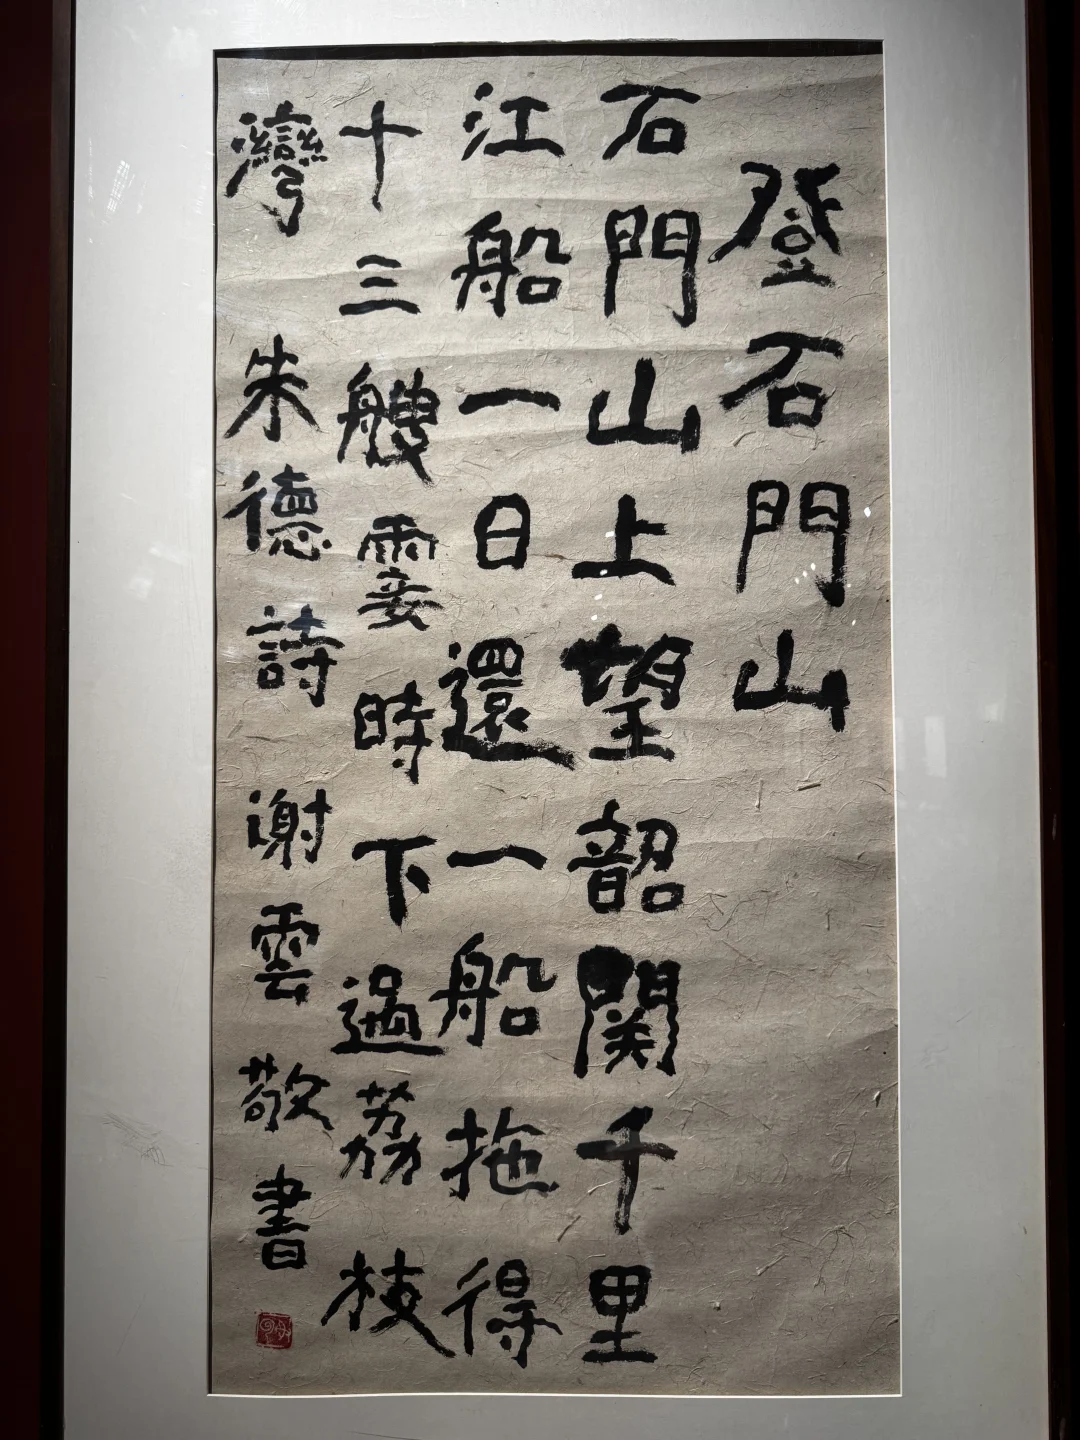 登石門山
石門山上望韶関千里
江船一日還一船拖得
十三艘霎時下過荔枝
灣 朱德詩 谢雲敬書